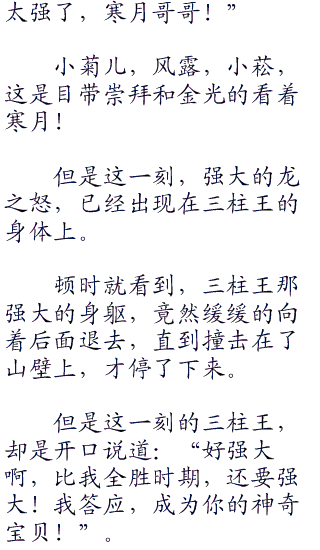 太强了，寒月哥哥！”
小菊儿，风露，小菘，
这是目带崇拜和金光的看着
寒月！
但是这一刻，强大的龙
之怒，已经出现在三柱王的
身体上。
顿时就看到，三柱王那
强大的身躯，竟然缓缓的向
着后面退去，直到撞击在了
山壁上，才停了下来。
但是这一刻的三柱王，
却是开口说道：“好强大
啊，比我全胜时期，还要强
大！我答应，成为你的神奇
宝贝！”。